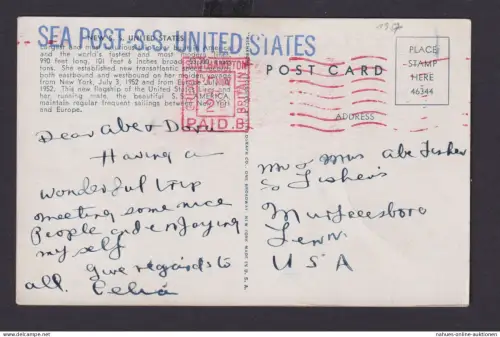 SEA POST S.S. UNITED STATES
NEW S.S. UNITED STATES
Largest and most
and the world's fastest and most modern
990 feet long, 101 feet 6 inches broad
tons. She established new transatlantic speed
both eastbound and westbound on her maiden voyage
from New York, July 3, 1952 and from
1952. This new flagship of the United States Lines and
her running mate, the beautiful S.S. AMERICA,
maintain regular frequent sailings between New York
and Europe.
PAID.
BRITAIN
1957
POST CARD
PLACE
STAMP
HERE
46344
ADDRESS
Dear Abe & Dora
Having a
wonderful trip
meeting some nice
People and enjoying
my self
Give regards to
all. Celia
Mr & Mrs Abe Fisher
c/o Fisher's
Murfreesboro
Tenn.
USA